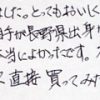 した。とってもおいしく
相手が長野県出身
当によかったです。
ス直接買ってみた